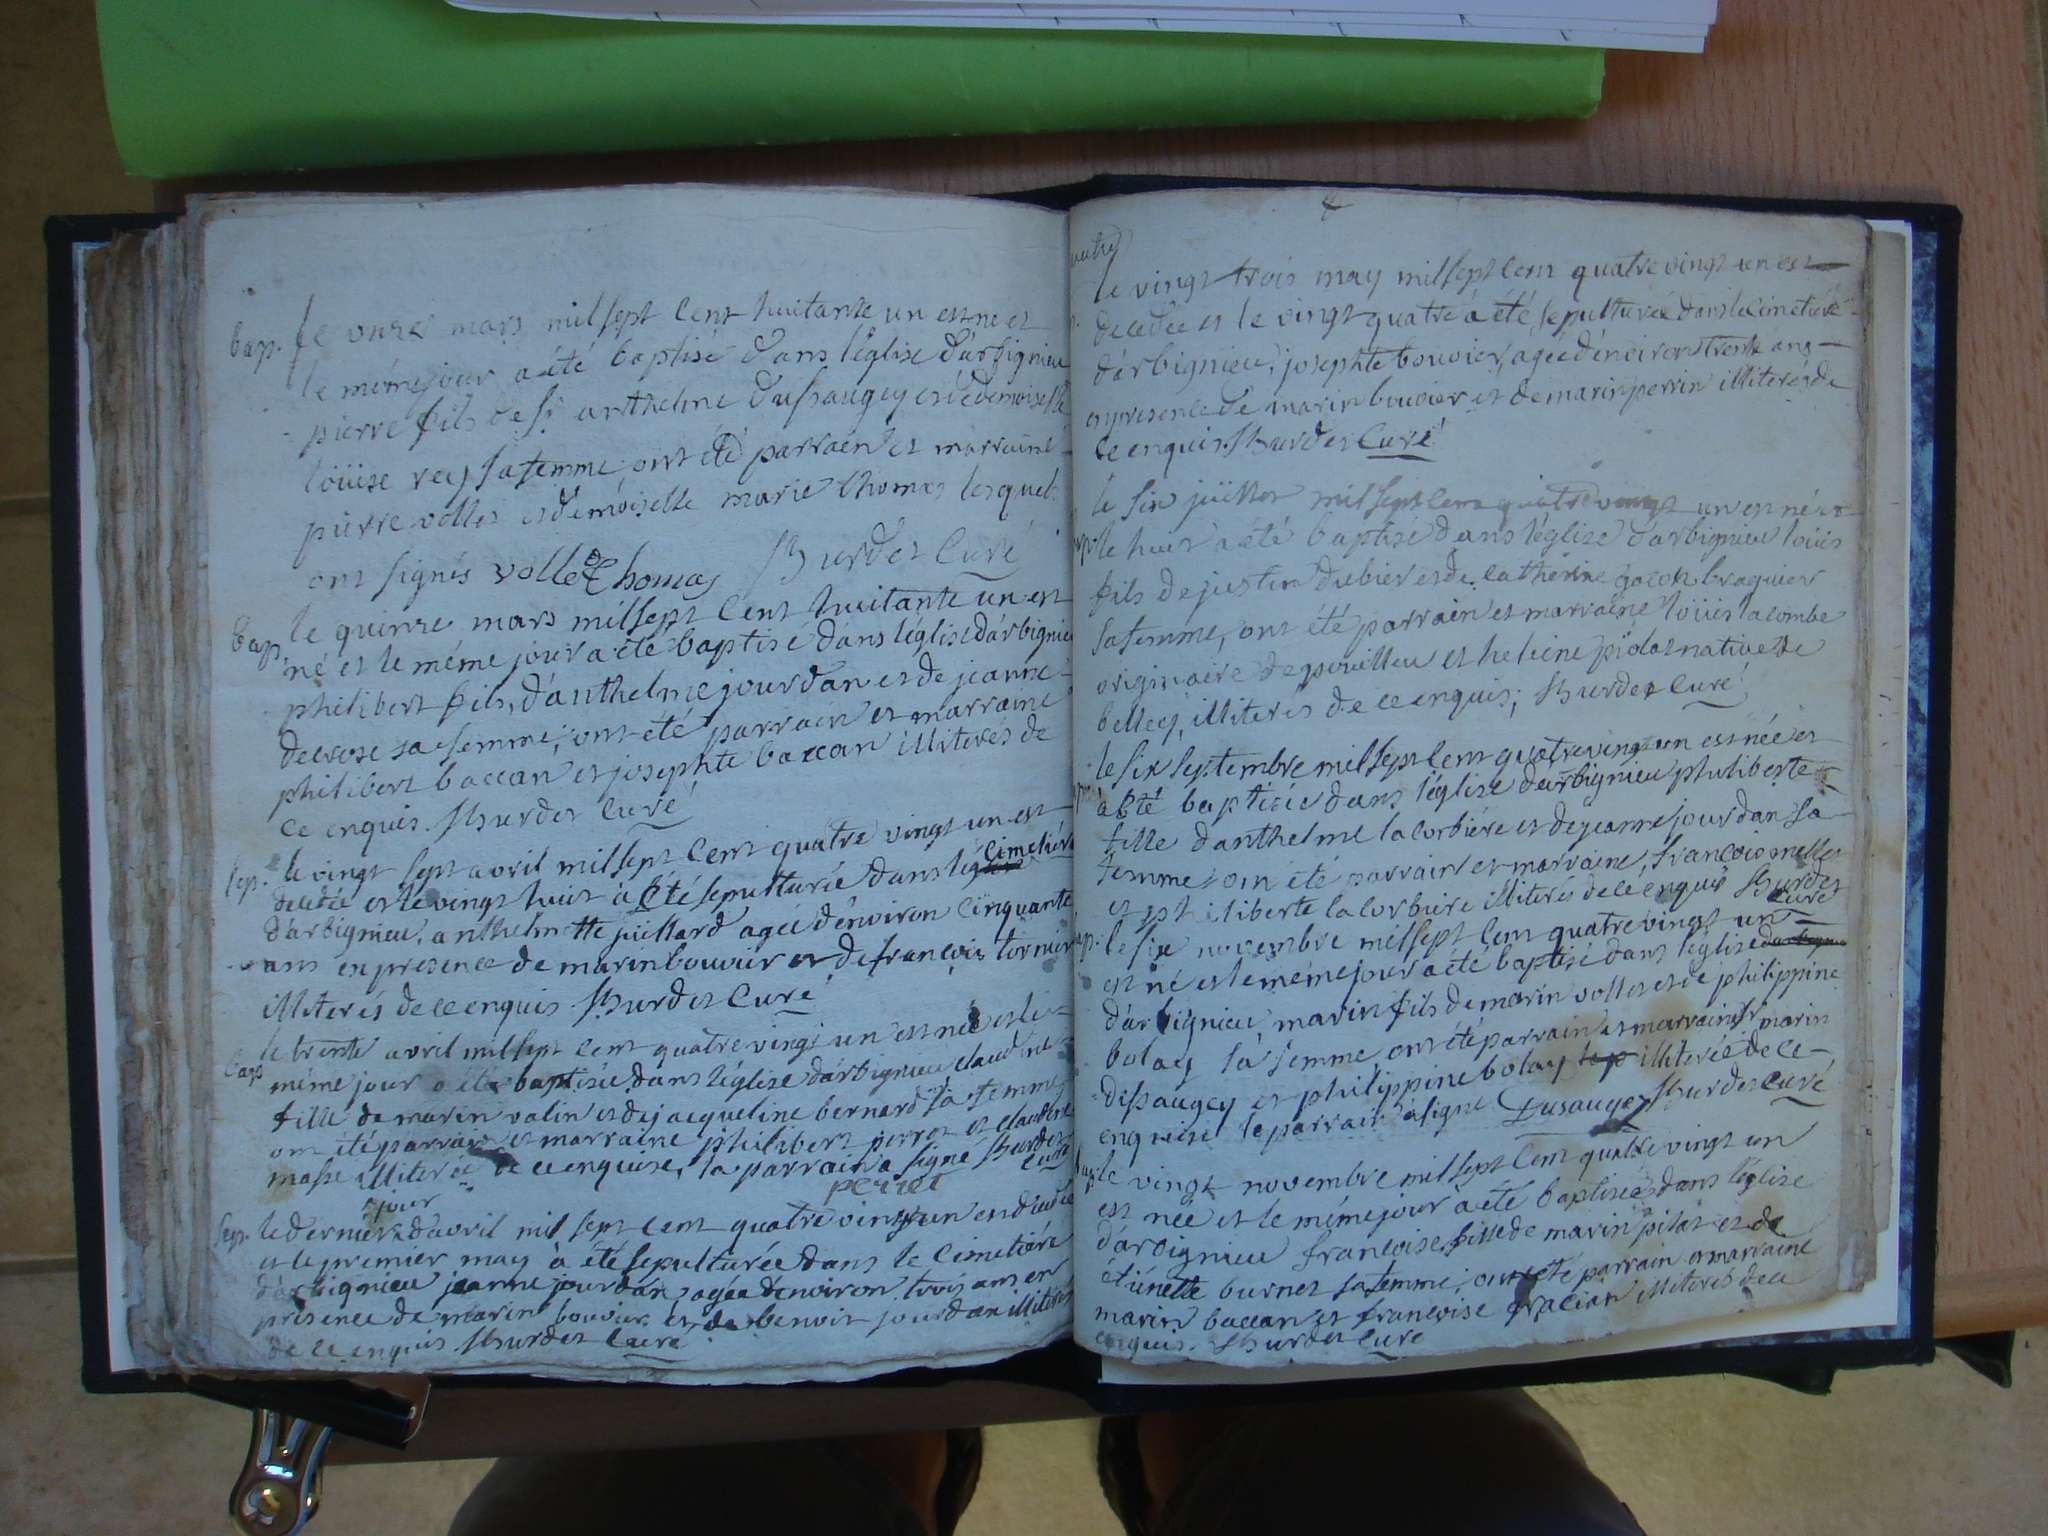 bap. le onze mars mil sept cent huitante un est né et
le méme jour a été baptisé dans l'église d'arbignieu
pierre fils de sr anthelme dussaugey et de demoiselle
loüise rey sa femme ont été parrain et marraine
pierre vollet et demoiselle marie thomas lesquels
ont signés vollet Thomas Hurdet curé
bap. le quinze mars mil sept cent huitante un est
né et le méme jour a été baptisé dans l'église d'arbignieu
philibert fils, d'anthelme jourdan et de jeanne
decrose sa femme, ont été parrain et marraine
philibert baccan et josephte baccan illiterés de
ce enquis. Hurdet curé
sep. le vingt sept avril mil sept cent quatre vingt un est
decedée et le vingt huit à été sepulturée dans le cimetiére
d'arbignieu, anthelmette juillard agée d'énviron cinquante
ans en presence de marin bouvier et de françois tornier
illiterés de ce enquis Hurdet curé
bap le trente avril mil sept cent quatre vingt un est née et le
méme jour a été baptisée dans l'église d'arbignieu claudine
fille de marin valin et de jacqueline bernard sa femme
ont été parrain et marraine philibert perret et claudine
masse illiterée de ce enquise, la parrain a signé Hurdet
curé
perret
jour
sep. le dernier d'avril mil sept cent quatre vingt un est decedée
et le premier may à été sepulturée dans le cimetiére
d'arbignieu jeanne jourdan agée d'énviron trois ans en
présence de marin bouvier et de benoit jourdan illiterés
de ce enquis Hurdet curé
le vingt trois may mil sept cent quatre vingt un est
decedée et le vingt quatre à été sepulturée dans le cimetiére
d'arbignieu, josephte bouvier, agée d'énviron trente ans
en presence de marin bouvier et de marin perrin illiterés de
ce enquis. Hurdet curé
le six juillet mil sept cent quatre vingt un est né et
le huit a été baptisé dans l'église d'arbignieu loüis
fils de justin dubier et de catherine gacon braquier
sa femme, ont été parrain et marraine loüis lacombe
originaire de et heleine pidot native de
belley, illiterés de ce enquis; Hurdet curé
le six septembre mil sept cent quatre vingt un est née et
à été baptisée dans l'église d'arbignieu philiberte
fille d'anthelme lacorbiére et de jeanne jourdan sa
femme, ont été parrain et marraine, françois mellet
et philiberte lacorbiére illiterés de ce enquis Hurdet
curé
le six novembre mil sept cent quatre vingt un
est né et le méme jour a été baptisé dans l'église
d'arbignieu marin fils de marin vollet et de philippine
bolay sa femme ont été parrain et marraine sr marin
dissaugey et philippine bolay illiterée de ce
enquise le parrain à signé Dusaugey Hurdet curé
le vingt novembre mil sept cent quatre vingt un
est née et le méme jour à été baptisée dans l'église
d'arbignieu francoise fille de marin pilat et de
étiénette burnet sa femme, ont été parrain et marraine
marin baccan et francoise gracian illiterés de ce
enquis. Hurdet curé